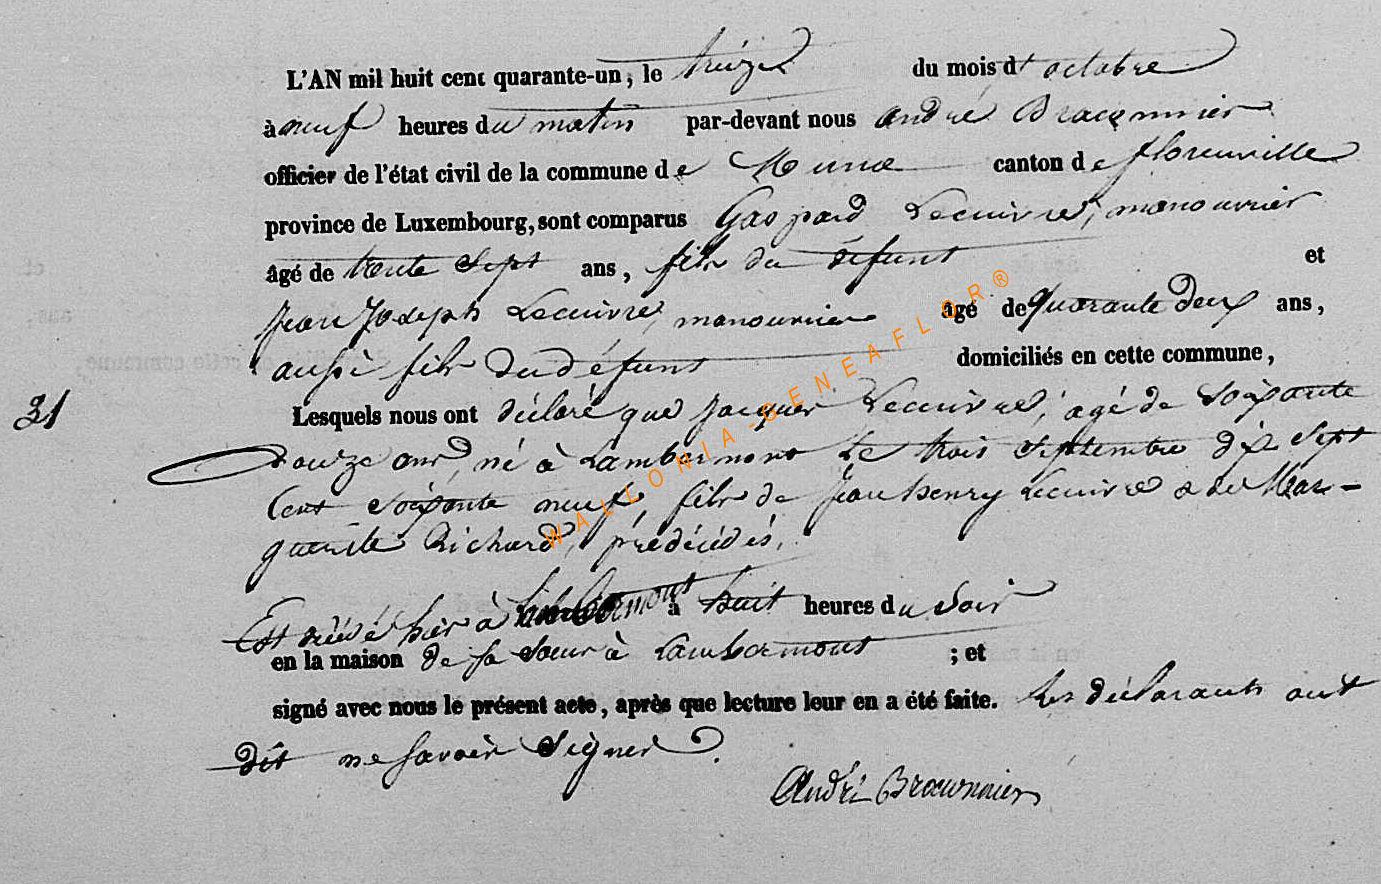 L'AN mil huit cent quarante-un, le treize du mois d'octobre
à neuf heures du matin par-devant nous andré Braconnier
officier de l'état civil de la commune de Muno canton de florenville
province de Luxembourg, sont comparus Gaspard Lecuivre, manouvrier
âgé de trente Sept ans, fils du défunt et
Jean Joseph Lecuivre, manouvrier âgé de quarante deux ans,
aussi fils du défunt domiciliés en cette commune,
31 Lesquels nous ont déclaré que Jacques Lecuivre, agé de Soixante
Douze ans, né à Lambermont Le trois Septembre dix Sept
Cent Soixante neuf, fils de Jean henry Lecuivre & de Mar-
guerite Richard, prédécédés.
Est décédé hier à Lambermont à huit heures du Soir
en la maison de sa Soeur à Lambermont ; et
signé avec nous le présent acte, après que lecture leur en a été faite. Les déclarants ont
dit ne savoir Signer.
André Braconnier
WALLONIA-GENEAFLOR®